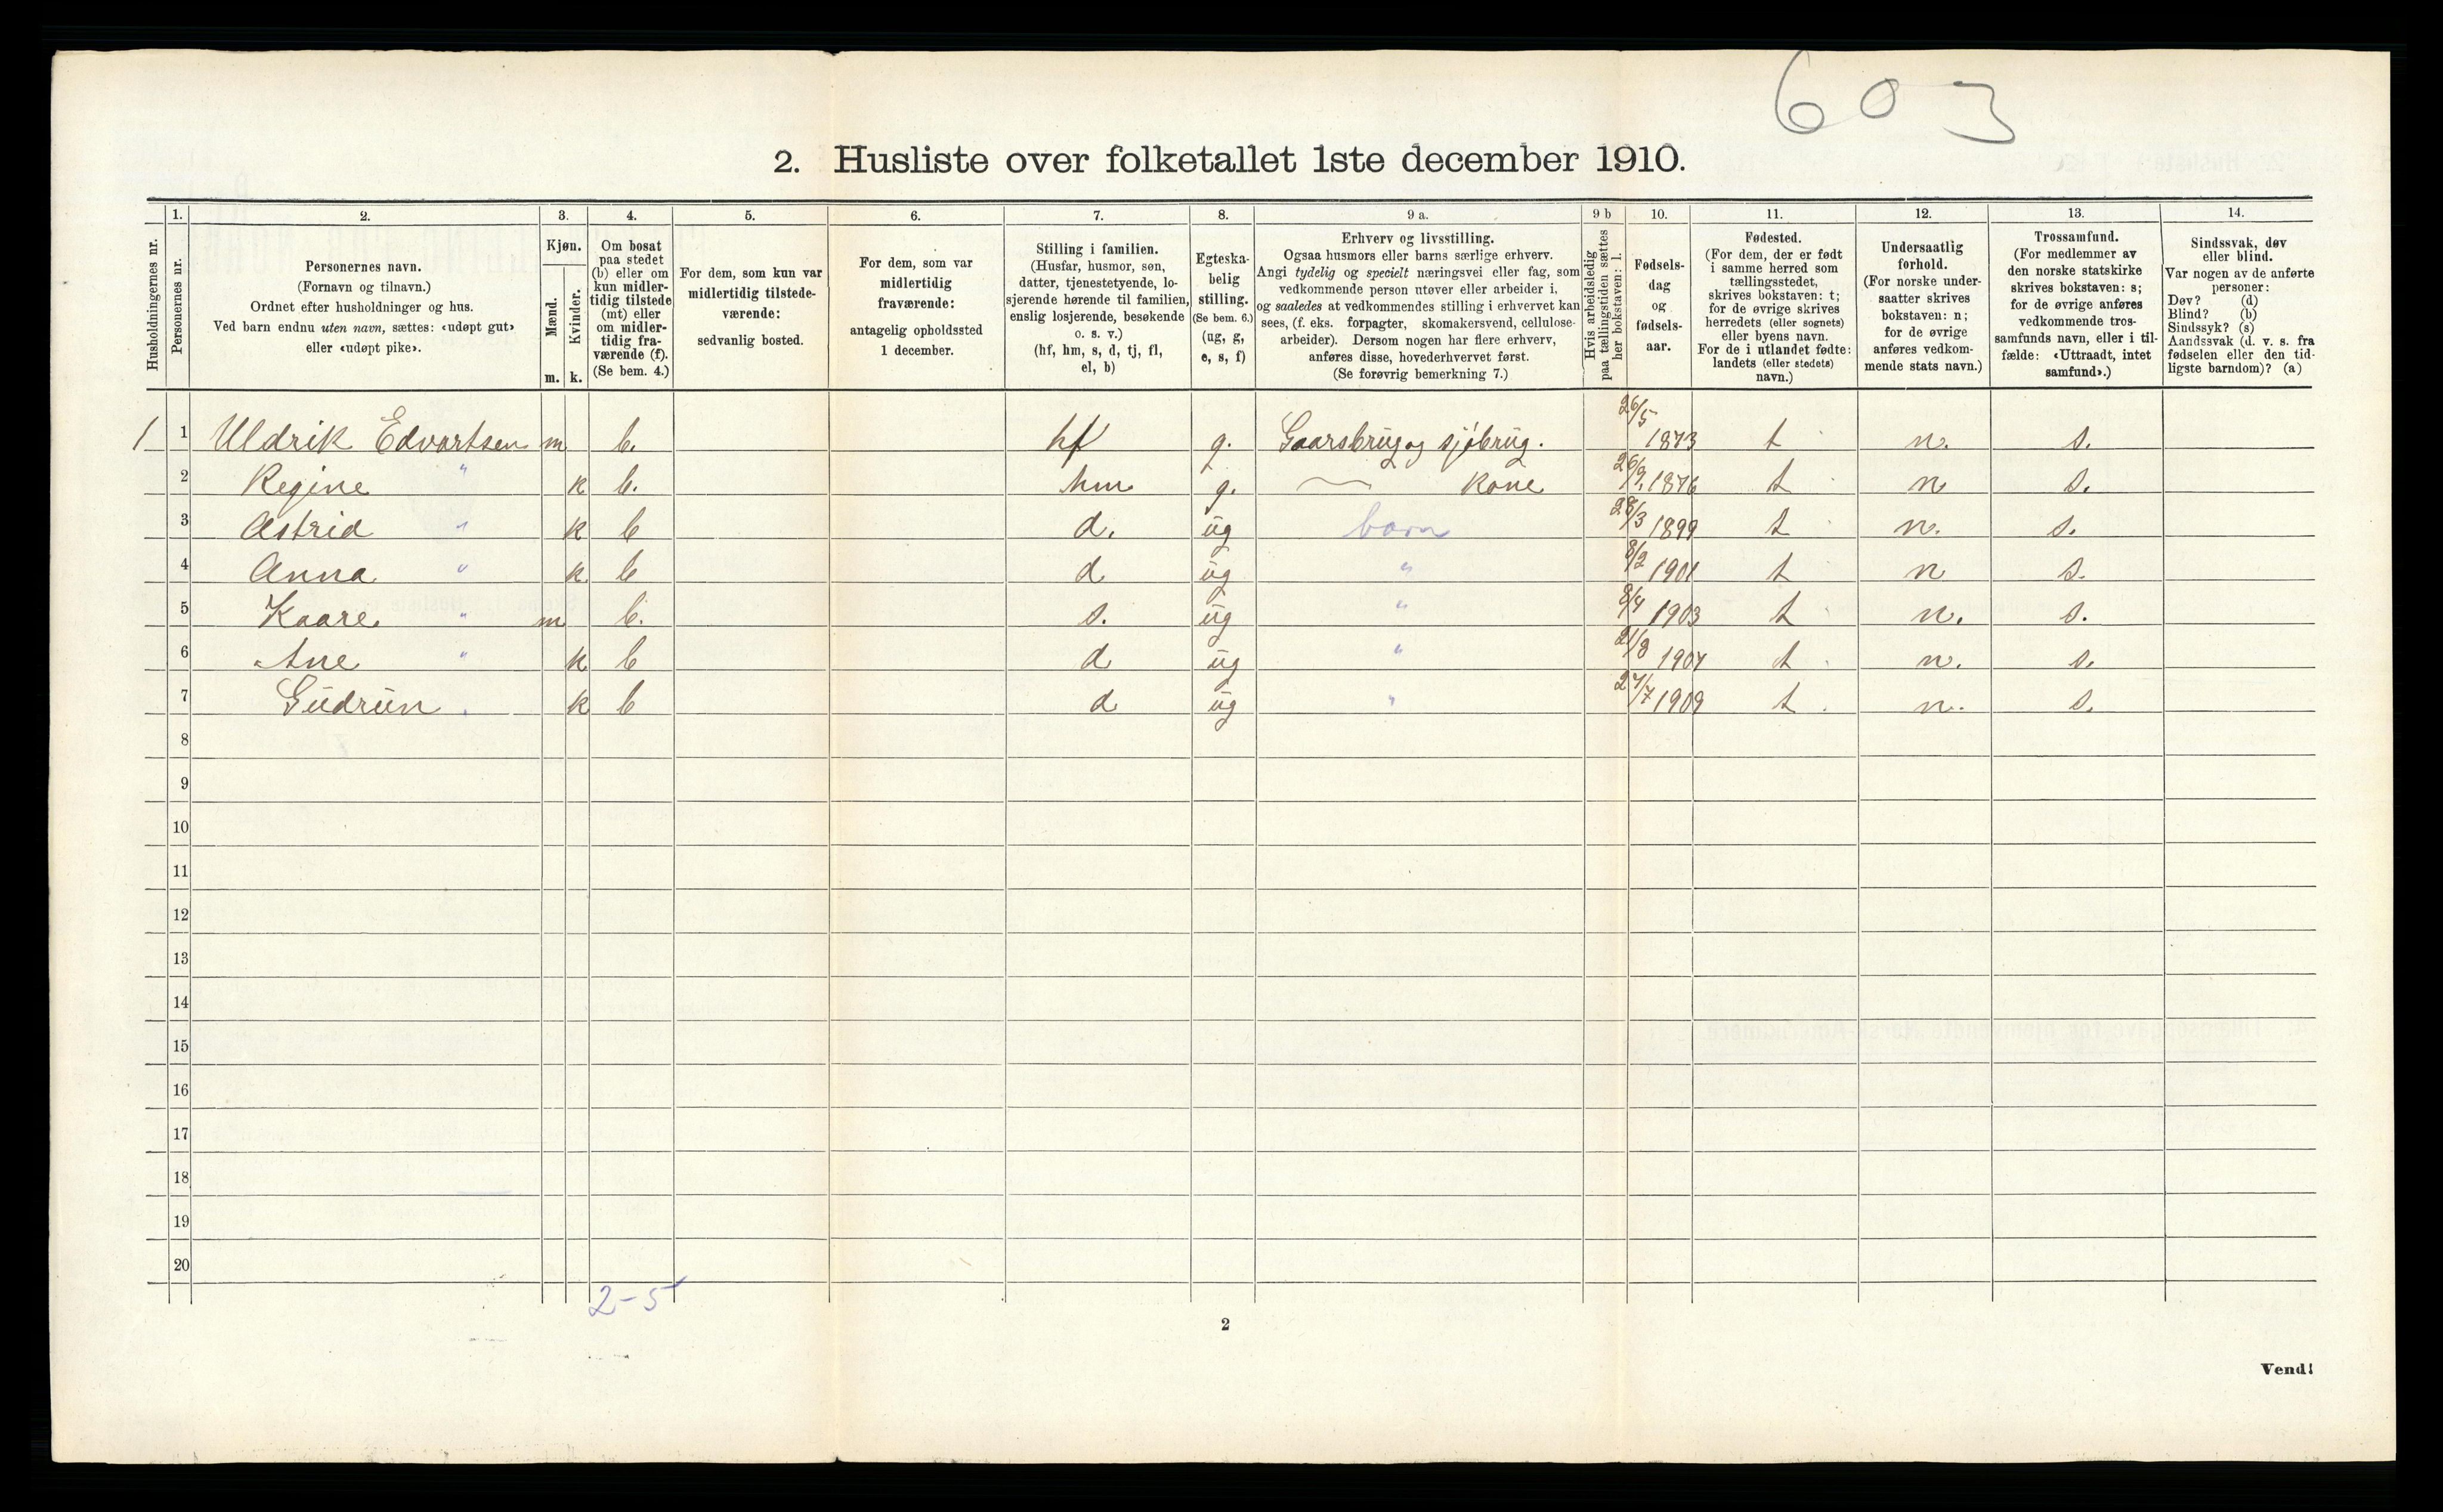 603
2. Husliste over folketallet 1ste december 1910.
Husholdningernes nr.
1.
Personernes nr.
2.
Personernes navn.
(Fornavn og tilnavn.)
Ordnet efter husholdninger og hus.
Ved barn endnu uten navn, sættes: «udøpt gut»
eller «udøpt pike».
3.
Kjøn.
Mænd.
Kvinder.
m. k.
4.
Om bosat
paa stedet
(b) eller om
kun midler-
tidig tilstede
(mt) eller
om midler-
tidig fra-
værende (f).
(Se bem. 4.)
5.
For dem, som kun var
midlertidig tilstede-
værende:
sedvanlig bosted.
6.
For dem, som var
midlertidig
fraværende:
antagelig opholdssted
1 december.
7.
Stilling i familien.
(Husfar, husmor, søn,
datter, tjenestetyende, lo-
sjerende hørende til familien,
enslig losjerende, besøkende
o. s. v.)
(hf, hm, s, d, tj, fl,
el, b)
8.
Egteska-
belig
stilling.
(Se bem. 6.)
(ug, g,
e, s, f)
9 a.
Erhverv og livsstilling.
Ogsaa husmors eller barns særlige erhverv.
Angi tydelig og specielt næringsvei eller fag, som
vedkommende person utøver eller arbeider i,
og saaledes at vedkommendes stilling i erhvervet kan
sees, (f. eks. forpagter, skomakersvend, cellulose-
arbeider). Dersom nogen har flere erhverv,
anføres disse, hovederhvervet først.
(Se forøvrig bemerkning 7.)
9 b
Hvis arbeidsledig
paa tællingstiden sættes
her bokstaven: l.
10.
Fødsels-
dag
og
fødsels-
aar.
11.
Fødested.
(For dem, der er født
i samme herred som
tællingsstedet,
skrives bokstaven: t;
for de øvrige skrives
herredets (eller sognets)
eller byens navn.
For de i utlandet fødte:
landets (eller stedets)
navn.)
12.
Undersaatlig
forhold.
(For norske under-
saatter skrives
bokstaven: n;
for de øvrige
anføres vedkom-
mende stats navn.)
13.
Trossamfund.
(For medlemmer av
den norske statskirke
skrives bokstaven: s;
for de øvrige anføres
vedkommende tros-
samfunds navn, eller i til-
fælde: «Uttraadt, intet
samfund».)
14.
Sindssvak, døv
eller blind.
Var nogen av de anførte
personer:
Døv? (d)
Blind? (b)
Sindssyk? (s)
Aandssvak (d. v. s. fra
fødselen eller den tid-
ligste barndom)? (a)
1 1 Uldrik Edvartsen m b. hf g. Gaarsbrug og sjöbrug. 26/5 1873 t n. s.
2 Regine " k b. hm g. — Kone 26/9 1876 t n s.
3 Astrid " k b d. ug barn 28/3 1899 t n. s.
4 Anna " k b d ug " 8/2 1901 t n s.
5 Kaare " m b. s. ug " 8/4 1903 t n. s.
6 Ane " k b d ug " 21/8 1907 t n. s.
7 Gudrun " k b d ug " 27/7 1909 t n. s.
8
9
10
11
12
13
14
15
16
17
18
19
20
2-5
2
Vend!